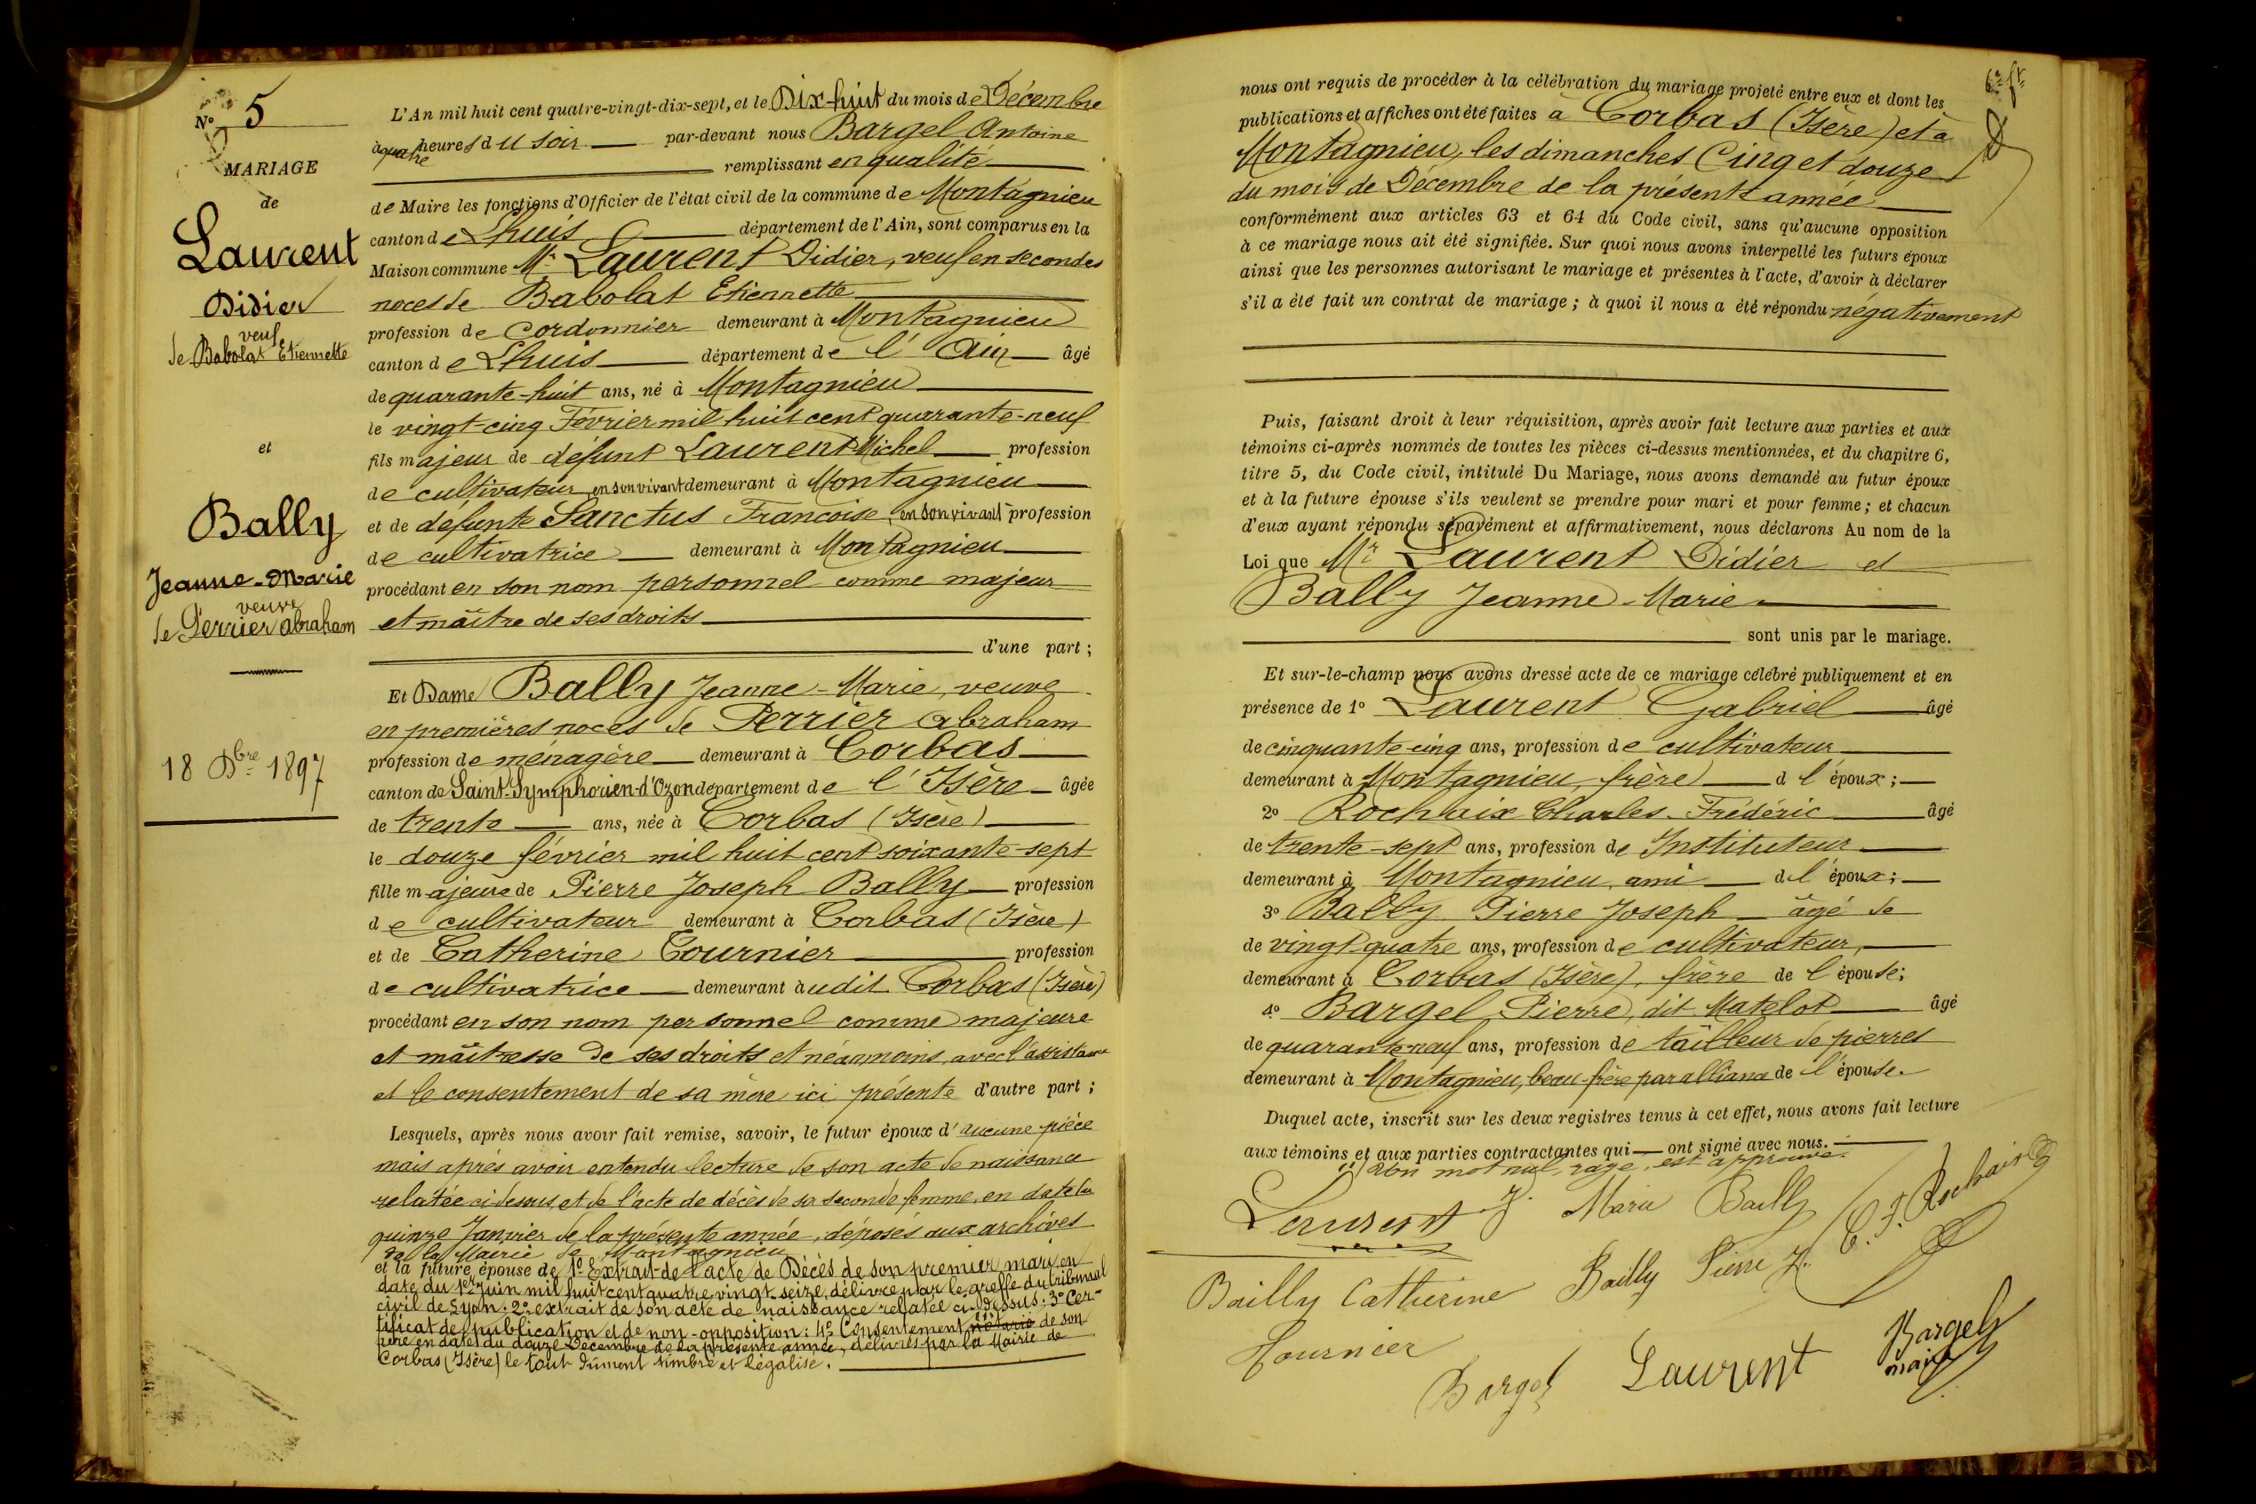 N° 5
MARIAGE
de
Laurent
Didier
veuf
de Babolat Etiennette
et
Bally
Jeanne-Marie
veuve
de Perrier Abraham
18 Dbre 1897
L'An mil huit cent quatre-vingt-dix-sept, et le Dix-huit du mois de Décembre
à quatre heures du soir par-devant nous Bargel Antoine
remplissant en qualité
de Maire les fonctions d'Officier de l'état civil de la commune de Montagnieu
canton de Lhuis département de l'Ain, sont comparus en la
Maison commune Mr Laurent Didier, veuf en secondes
noces de Babolat Etiennette
profession de cordonnier demeurant à Montagnieu
canton de Lhuis département de l'Ain âgé
de quarante-huit ans, né à Montagnieu
le vingt-cinq Février mil huit cent quarante-neuf
fils majeur de défunt Laurent Michel profession
de cultivateur, en son vivant demeurant à Montagnieu
et de défunte Sanctus Francoise, en son vivant profession
de cultivatrice demeurant à Montagnieu
procédant en son nom personnel comme majeur
et maître de ses droits
d'une part ;
Et Dame Bally Jeanne-Marie, veuve
en premières noces de Perrier Abraham
profession de ménagère demeurant à Corbas
canton de Saint-Symphorien-d'Ozon département de l'Isère âgée
de trente ans, née à Corbas (Isère)
le douze février mil huit cent soixante-sept
fille majeure de Pierre Joseph Bally profession
de cultivateur demeurant à Corbas (Isère)
et de Catherine Tournier profession
de cultivatrice demeurant audit Corbas (Isère)
procédant en son nom personnel comme majeure
et maîtresse de ses droits et néanmoins avec l'assistance
et le consentement de sa mère ici présente d'autre part ;
Lesquels, après nous avoir fait remise, savoir, le futur époux d'aucune pièce
mais après avoir entendu lecture de son acte de naissance
relatée ci-dessus, et de l'acte de décès de sa seconde femme, en date du
quinze Janvier de la présente année, déposés aux archives
de la Mairie de Montagnieu
et la future épouse de 1° Extrait de l'acte de Décès de son premier mari en
date du 1er Juin mil huit cent quatre vingt-seize, délivré par le greffe du tribunal
civil de Lyon : 2° extrait de son acte de naissance relatée ci-dessus : 3° Cer-
tificat de publication et de non-opposition : 4° Consentement notarié de son
père en date du douze Décembre de la présente année, délivrés par la Mairie de
Corbas (Isère) le tout dûment timbré et légalisé.
6e ft
nous ont requis de procéder à la célébration du mariage projeté entre eux et dont les
publications et affiches ont été faites à Corbas (Isère) et à
Montagnieu, les dimanches Cinq et douze
du mois de Décembre de la présente année
conformément aux articles 63 et 64 du Code civil, sans qu'aucune opposition
à ce mariage nous ait été signifiée. Sur quoi nous avons interpellé les futurs époux
ainsi que les personnes autorisant le mariage et présentes à l'acte, d'avoir à déclarer
s'il a été fait un contrat de mariage ; à quoi il nous a été répondu négativement
Puis, faisant droit à leur réquisition, après avoir fait lecture aux parties et aux
témoins ci-après nommés de toutes les pièces ci-dessus mentionnées, et du chapitre 6,
titre 5, du Code civil, intitulé Du Mariage, nous avons demandé au futur époux
et à la future épouse s'ils veulent se prendre pour mari et pour femme ; et chacun
d'eux ayant répondu séparément et affirmativement, nous déclarons Au nom de la
Loi que Mr Laurent Didier et
Bally Jeanne-Marie
sont unis par le mariage.
Et sur-le-champ nous avons dressé acte de ce mariage célébré publiquement et en
présence de 1° Laurent Gabriel âgé
de cinquante-cinq ans, profession de cultivateur
demeurant à Montagnieu, frère d l'époux ;
2° Rochaix Charles-Frédéric âgé
de trente-sept ans, profession de Instituteur
demeurant à Montagnieu, ami de l'époux ;
3° Bally Pierre Joseph âgé de
de vingt-quatre ans, profession de cultivateur,
demeurant à Corbas (Isère), frère de l'épouse ;
4° Bargel Pierre, dit Matelot âgé
de quarante-neuf ans, profession de tailleur de pierres
demeurant à Montagnieu, beau frère par alliance de l'épouse.
Duquel acte, inscrit sur les deux registres tenus à cet effet, nous avons fait lecture
aux témoins et aux parties contractantes qui ont signé avec nous.
Un mot nul, rayé, est approuvé.
Laurent J. Marie Bailly C. F. Rochaix
Bailly Catherine Bailly Pierre J.
Tournier
Bargel Laurent Bargel
maire